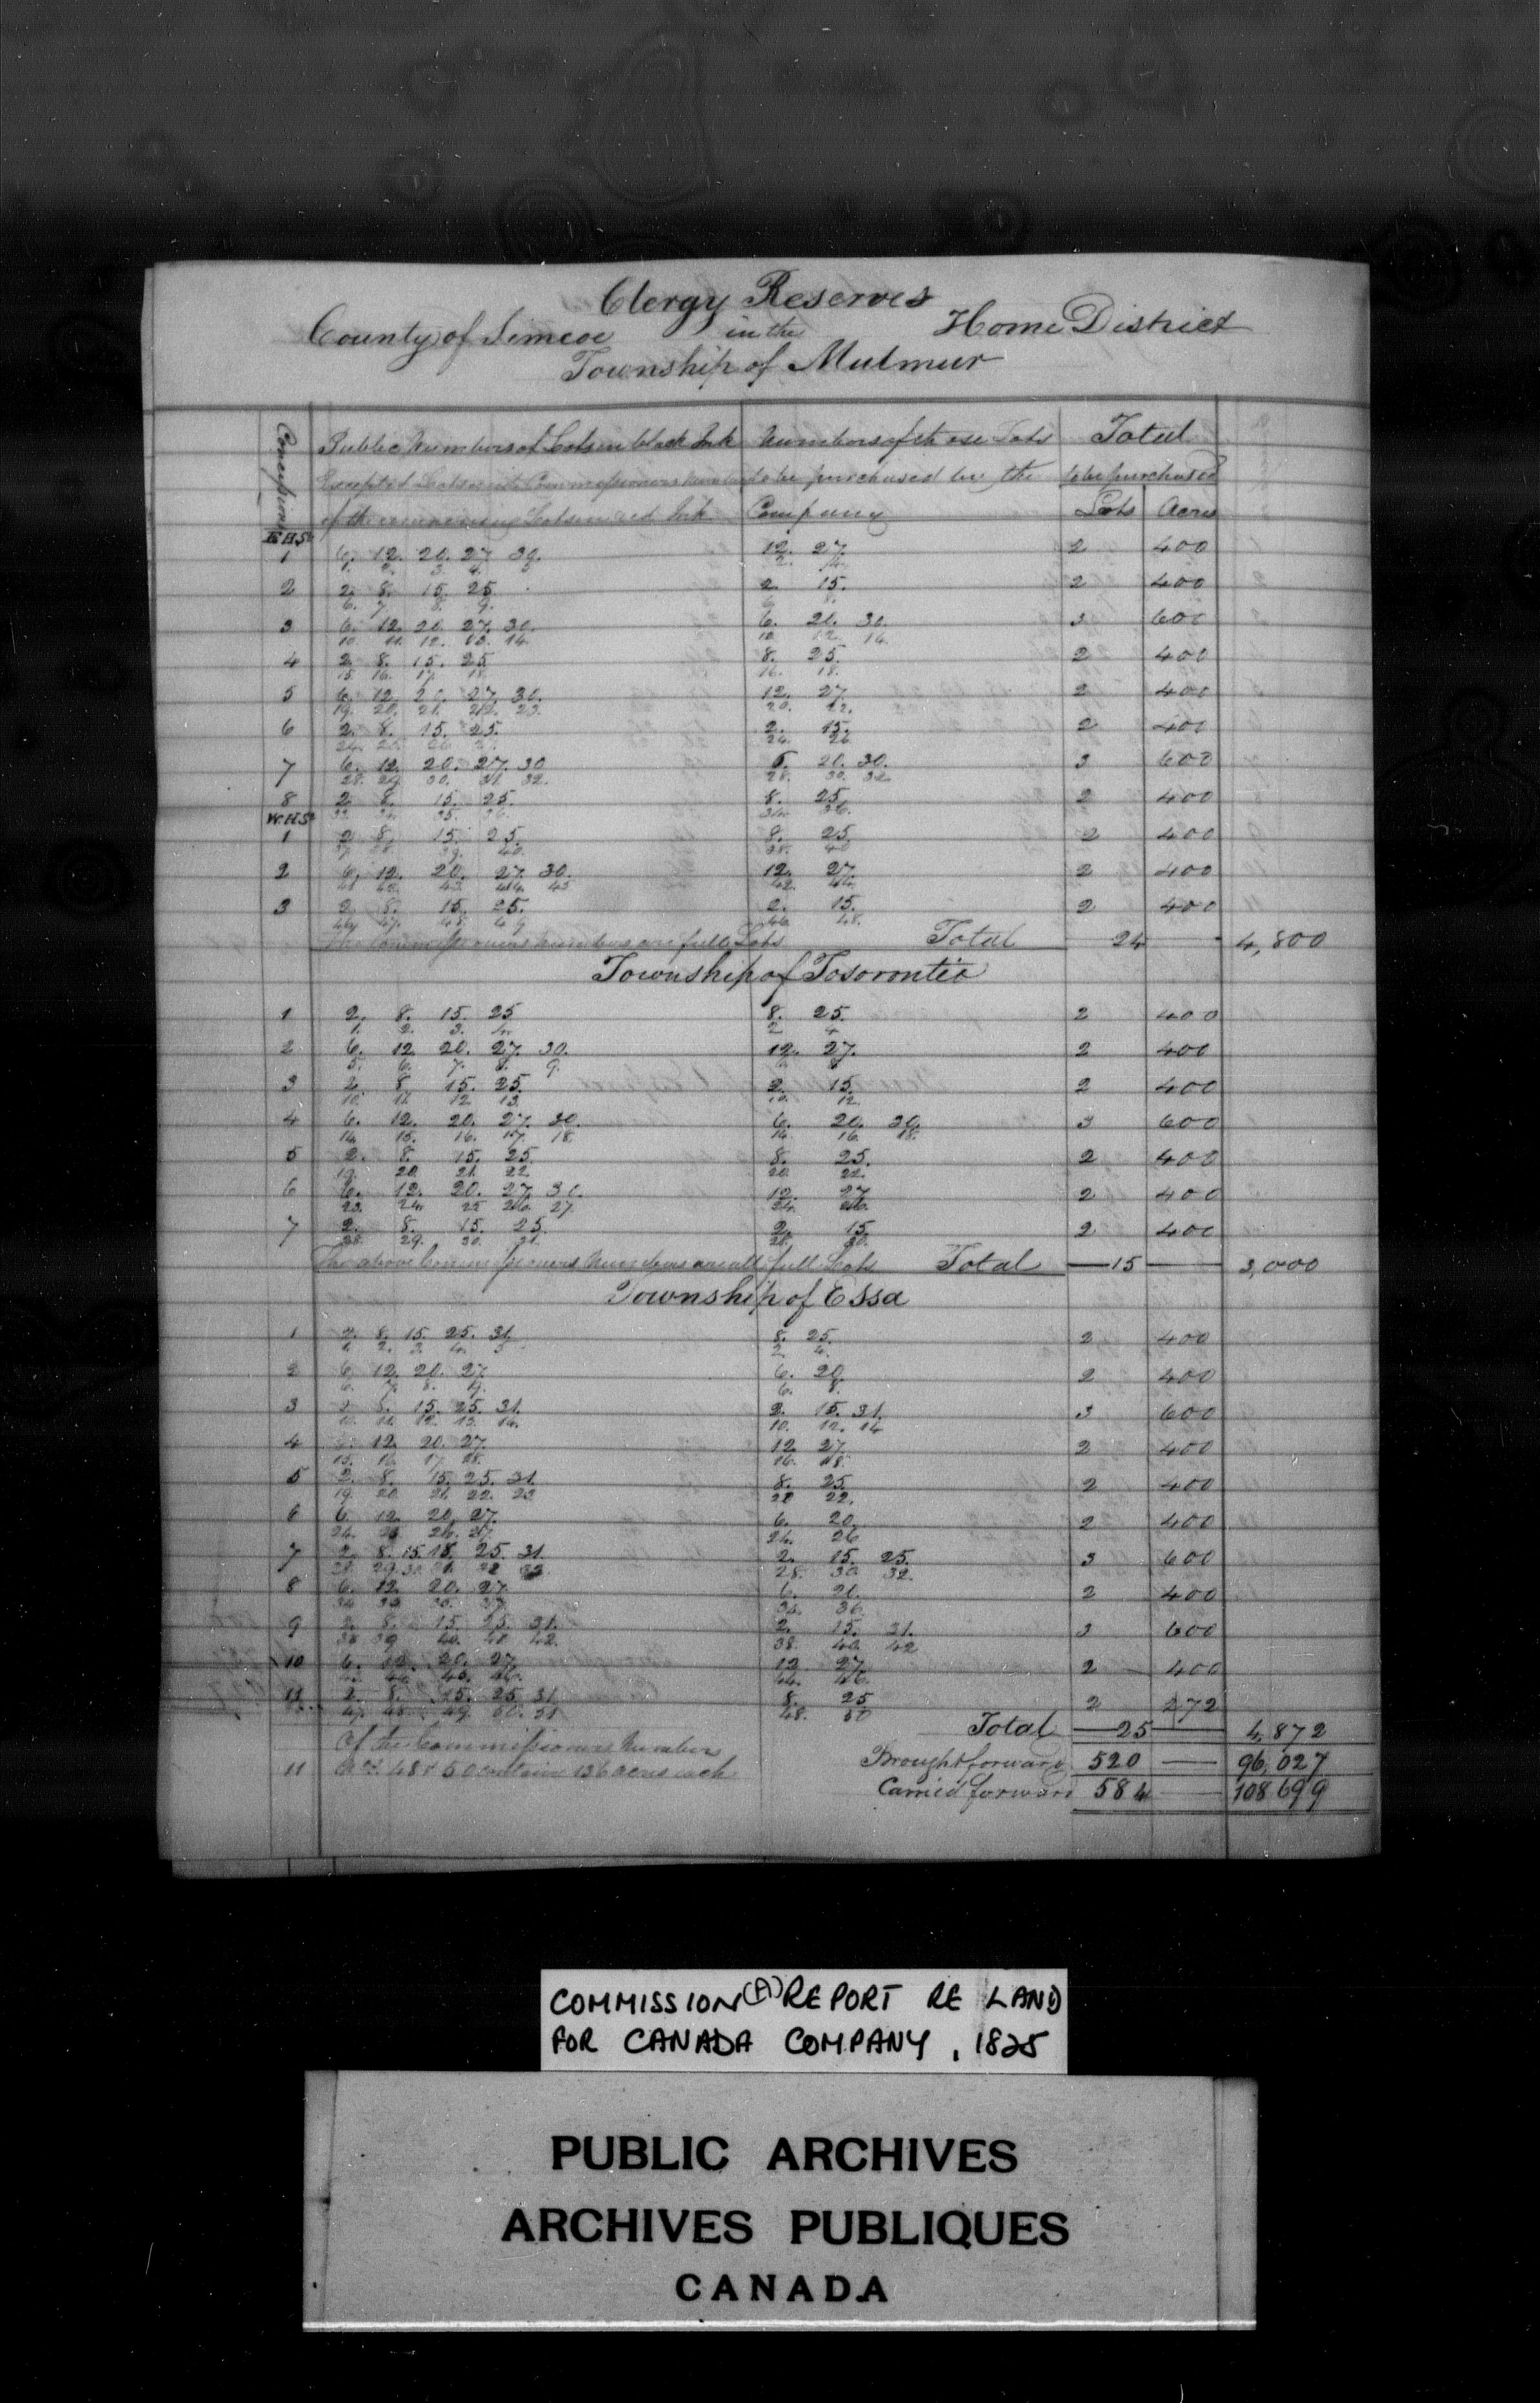 Clergy Reserves
County of Simcoe in the Home District
Township of Mulmur
Concessions Public Numbers of Lots in black Ink Numbers of these Lots Total
Excepted Lots with Commissioners Numbers to be purchased by the to be purchased
of the remaining Lots in red Ink Company Lots Acres
E.H.St
1 6. 12. 20. 27 30. 12. 27. 2 400
1. 2. 3. 4. 5 2. 4.
2 2. 8. 15. 25 2 15. 2 400
6. 7. 8. 9. 6. 8.
3 6. 12. 20. 27. 30. 6. 20. 30. 3 600
10. 11. 12. 13. 14. 10 12. 14.
4 2 8. 15. 25 8. 25. 2 400
15 16. 17. 18. 16. 18.
5 6. 12. 20. 27. 30. 12. 27. 2 400
19. 20. 21. 22. 23. 20. 22.
6 2. 8. 15. 25. 2. 15. 2 400
24. 25. 26 27. 24. 26
7 6. 12. 20. 27. 30 6. 20. 30. 3 600
28. 29. 30. 31. 32. 28. 30. 32
8 2 8. 15. 25. 8. 25 2 400
33 34. 35. 36. 34. 36.
W.H.St
1 2 8. 15. 25. 8. 25 2 400
37 38. 39. 40. 38. 40
2 6. 12. 20. 27. 30. 12. 27. 2 400
41 42. 43. 44. 45 42. 44.
3 2. 8. 15. 25. 2. 15. 2 400
46. 47. 48. 49 46. 48.
The Commissioners Numbers are full Lots Total 24 4,800
Township of Tosorontio
1 2. 8. 15. 25 8. 25. 2 400
1. 2. 3. 4. 2 4
2 6. 12 20. 27. 30. 12. 27. 2 400
5. 6. 7. 8. 9. 6. 8
3 2. 8. 15. 25. 2. 15. 2 400
10. 11 12 13. 10. 12.
4 6. 12. 20. 27. 30. 6. 20. 30. 3 600
14 15. 16. 17. 18. 14 16. 18.
5 2. 8. 15. 25. 8. 25. 2 400
19. 20 21. 22. 20. 22.
6 6. 12. 20. 27. 30. 12. 27 2 400
23. 24. 25 26. 27. 24. 26.
7 2. 8. 15. 25. 2. 15 2 400
28. 29. 30. 31. 28. 30.
The above Commissioners Numbers are all full Lots Total 15 3,000
Township of Essa
1 2. 8. 15. 25. 31. 8. 25. 2 400
1. 2. 3. 4. 5 2. 4.
2 6. 12. 20. 27. 6. 20. 2 400
6. 7. 8. 9. 6. 8.
3 2 8. 15. 25. 31. 2. 15. 31. 3 600
10. 11. 12. 13. 14. 10. 12. 14
4 12. 20. 27. 12 27. 2 400
15. 16 17. 18. 16. 18.
5 2. 8. 15. 25. 31. 8. 25. 2 400
19. 20 21. 22. 23 20 22.
6 6. 12. 20. 27. 6. 20. 2 400
24. 25 26. 27. 24. 26
7 2. 8. 15. 18. 25. 31. 2. 15. 25. 3 600
28. 29. 30. 31. 32 33. 28. 30 32.
8 6. 12. 20. 27. 6. 20. 2 400
34 35 36. 37. 34. 36.
9 2. 8. 15. 25. 31. 2. 15. 31. 3 600
38 39 40. 41. 42. 38. 40. 42
10 6. 12. 20. 27. 12 27. 2 400
44. 45. 46. 44. 46.
11 2. 8. 15. 25 31 8. 25 2 272
47. 48. 49. 50. 51 48. 50
Total 25 4,872
Of the Commissioners Number
Brought forward 520 96,027
11 48 & 50 contain 136 acres each
Carried forward 584 108699
COMMISSION (A) REPORT RE LAND
FOR CANADA COMPANY, 1825
PUBLIC ARCHIVES
ARCHIVES PUBLIQUES
CANADA